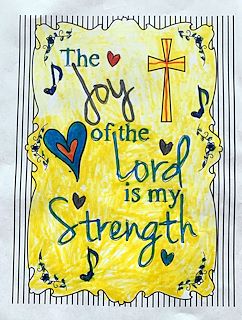 The
Joy
of the
Lord
is my
Strength